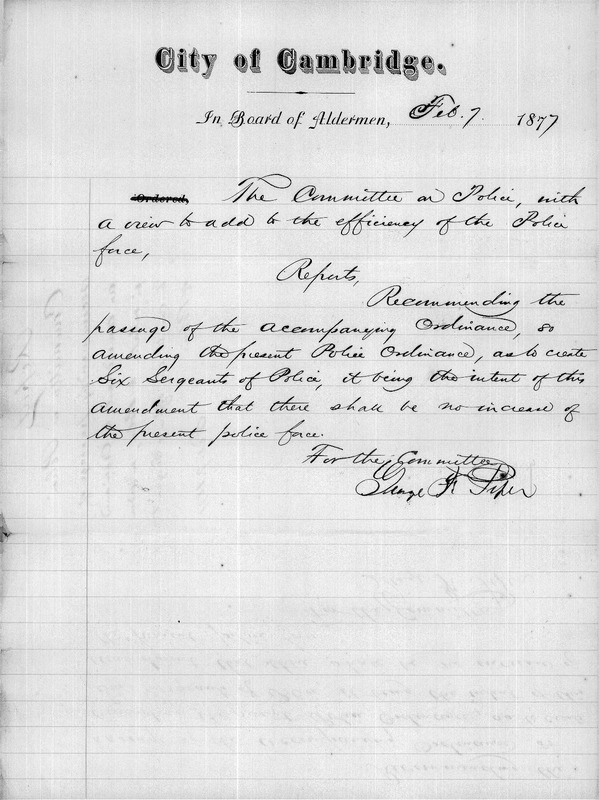 City of Cambridge.
In Board of Aldermen, Feb. 7. 1877
Ordered, The Committee on Police, with
a view to add to the efficiency of the Police
force,
Reports,
Recommending the
passage of the accompanying Ordinance, so
amending the present Police Ordinance, as to create
Six Sergeants of Police, it being the intent of this
amendment that there shall be no increase of
the present police force.
For the Committee
George F. Piper